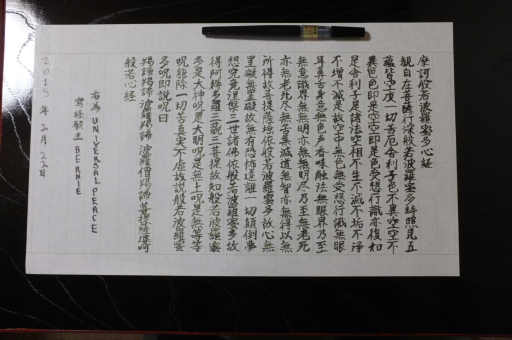 摩訶般若波羅蜜多心経
観自在菩薩行深般若波羅蜜多時照見五
蘊皆空度一切苦厄舎利子色不異空空不
異色色即是空空即是色受想行識亦復如
是舎利子是諸法空相不生不滅不垢不浄
不増不減是故空中無色無受想行識無眼
耳鼻舌身意無色声香味触法無眼界乃至
無意識界無無明亦無無明尽乃至無老死
亦無老死尽無苦集滅道無智亦無得以無
所得故菩提薩埵依般若波羅蜜多故心無
罣礙無罣礙故無有恐怖遠離一切顛倒夢
想究竟涅槃三世諸佛依般若波羅蜜多故
得阿耨多羅三藐三菩提故知般若波羅蜜
多是大神呪是大明呪是無上呪是無等等
呪能除一切苦真実不虚故説般若波羅蜜
多呪即説呪曰
羯諦羯諦波羅羯諦 波羅僧羯諦菩提薩婆呵
般若心経
右為 UNIVERSAL PEACE
寫経願主 BERNIE
2015年2月22日